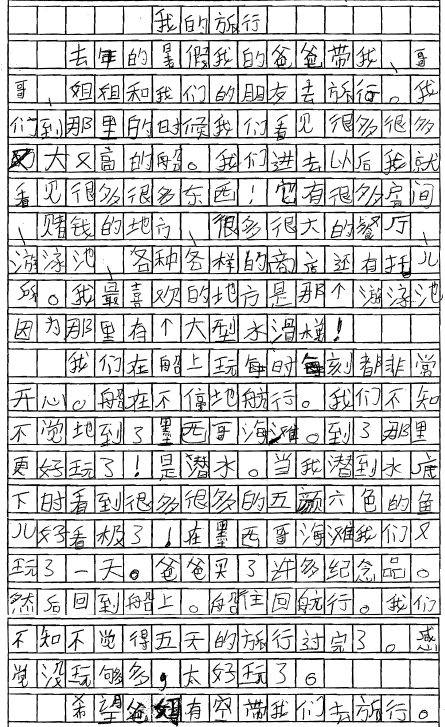 我的旅行
去年的暑假我的爸爸带我、哥
哥、姐姐和我们的朋友去旅行。我
们到那里的时候我们看见很多很多
又大又高的船。我们进去以后我就
看见很多很多东西！它有很多房间
、赌钱的地方、很多很大的餐厅、
游泳池、各种各样的商店还有托儿
所。我最喜欢的地方是那个游泳池
因为那里有个大型水滑梯！
我们在船上玩每时每刻都非常
开心。船在不停地航行。我们不知
不觉地到了墨西哥海滩。到了那里
更好玩了！是潜水。当我潜到水底
下时看到很多很多的五颜六色的鱼
儿好看极了！在墨西哥海滩我们又
玩了一天。爸爸买了许多纪念品。
然后回到船上。船往回航行。我们
不知不觉得五天的旅行过完了。感
觉没玩够多，太好玩了。
希望爸妈有空带我们去旅行。